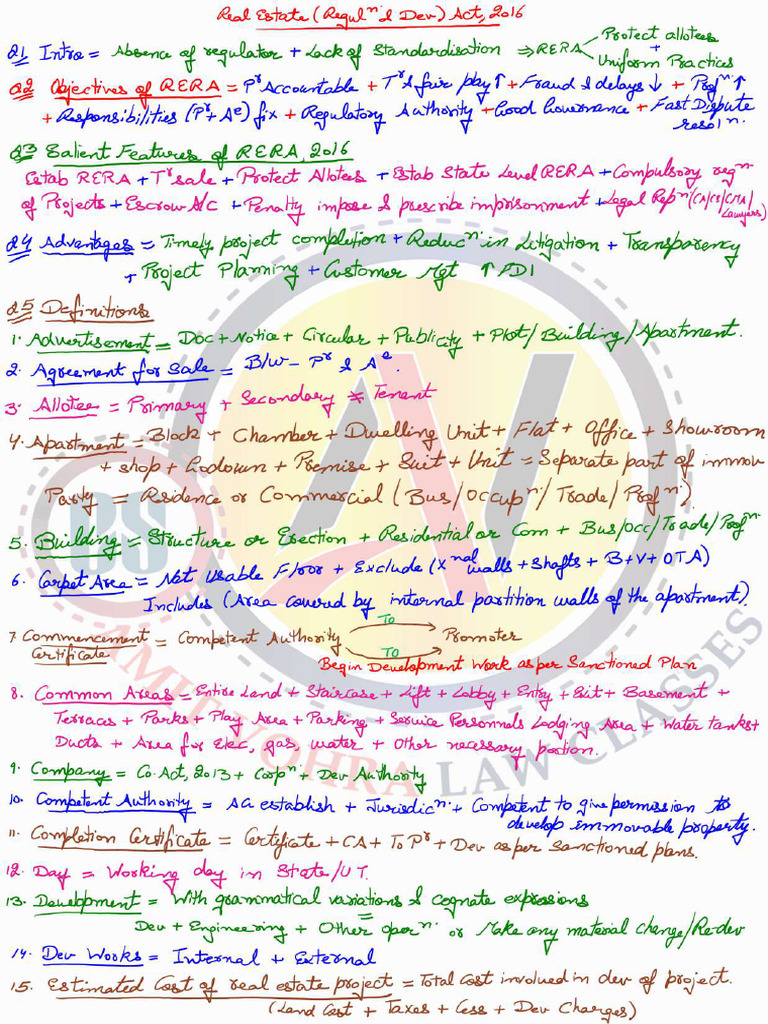 Real Estate (Regulⁿ & Dev) Act, 2016
Q1 Intro = Absence of regulator + Lack of Standardisation ⇒ RERA < Protect allotees + Uniform Practices
Q2 Objectives of RERA = Pʳ Accountable + Tʳ & fair play ↑ + Fraud & delays ↓ + Profⁿ ↑
+ Responsibilities (Pʳ + Aᵉ) fix + Regulatory Authority + Good Governance + Fast Dispute resolⁿ.
Q3 Salient Features of RERA, 2016
Estab RERA + Tʳ sale + Protect Allotees + Estab State Level RERA + Compulsory regⁿ
of Projects + Escrow A/c + Penalty impose & prescribe imprisonment + Legal Repⁿ (CA/CS/CMA/Lawyers)
Q4 Advantages = Timely project completion + Reducⁿ in Litigation + Transparency
+ Project Planning + Customer Mgt ↑ FDI
Q5 Definitions
1. Advertisement = Doc + Notice + Circular + Publicity + Plot/Building/Apartment.
2. Agreement for Sale = B/w - Pʳ & Aᵉ.
3. Allotee = Primary + Secondary ≠ Tenant
4. Apartment = Block + Chamber + Dwelling Unit + Flat + Office + Showroom
+ shop + Godown + Premise + Suit + Unit = Separate part of immov
Party = Residence or Commercial (Bus/Occupⁿ/Trade/Profⁿ).
5. Building = Structure or Erection + Residential or Com + Bus/Occ/Trade/Profⁿ
6. Carpet Area = Net Usable Floor + Exclude (Xⁿᵃˡ walls + Shafts + B+V+OTA)
Includes (Area covered by internal partition walls of the apartment).
7 Commencement Certificate = Competent Authority TO Promoter
TO Begin Development Work as per Sanctioned Plan
8. Common Areas = Entire Land + Staircase + Lift + Lobby + Entry + Exit + Basement +
Terraces + Parks + Play Area + Parking + Service Personnels Lodging Area + Water tanks +
Ducts + Area for Elec, gas, water + Other necessary portion.
9. Company = Co Act, 2013 + Corpⁿ + Dev Authority
10. Competent Authority = AG establish + Jurisdicⁿ + Competent to give permission to
develop immovable property.
11. Completion Certificate = Certificate + CA + To Pʳ + Dev as per Sanctioned plans.
12. Day = Working day in State/UT.
13. Development = With grammatical variations & cognate expressions
= Dev + Engineering + Other operⁿ or Make any material change/Re-dev
14. Dev Works = Internal + External
15. Estimated Cost of real estate project = Total Cost involved in dev of project.
(Land Cost + Taxes + Cess + Dev Charges)
BS
AV
AMIT VOHRA LAW CLASSES